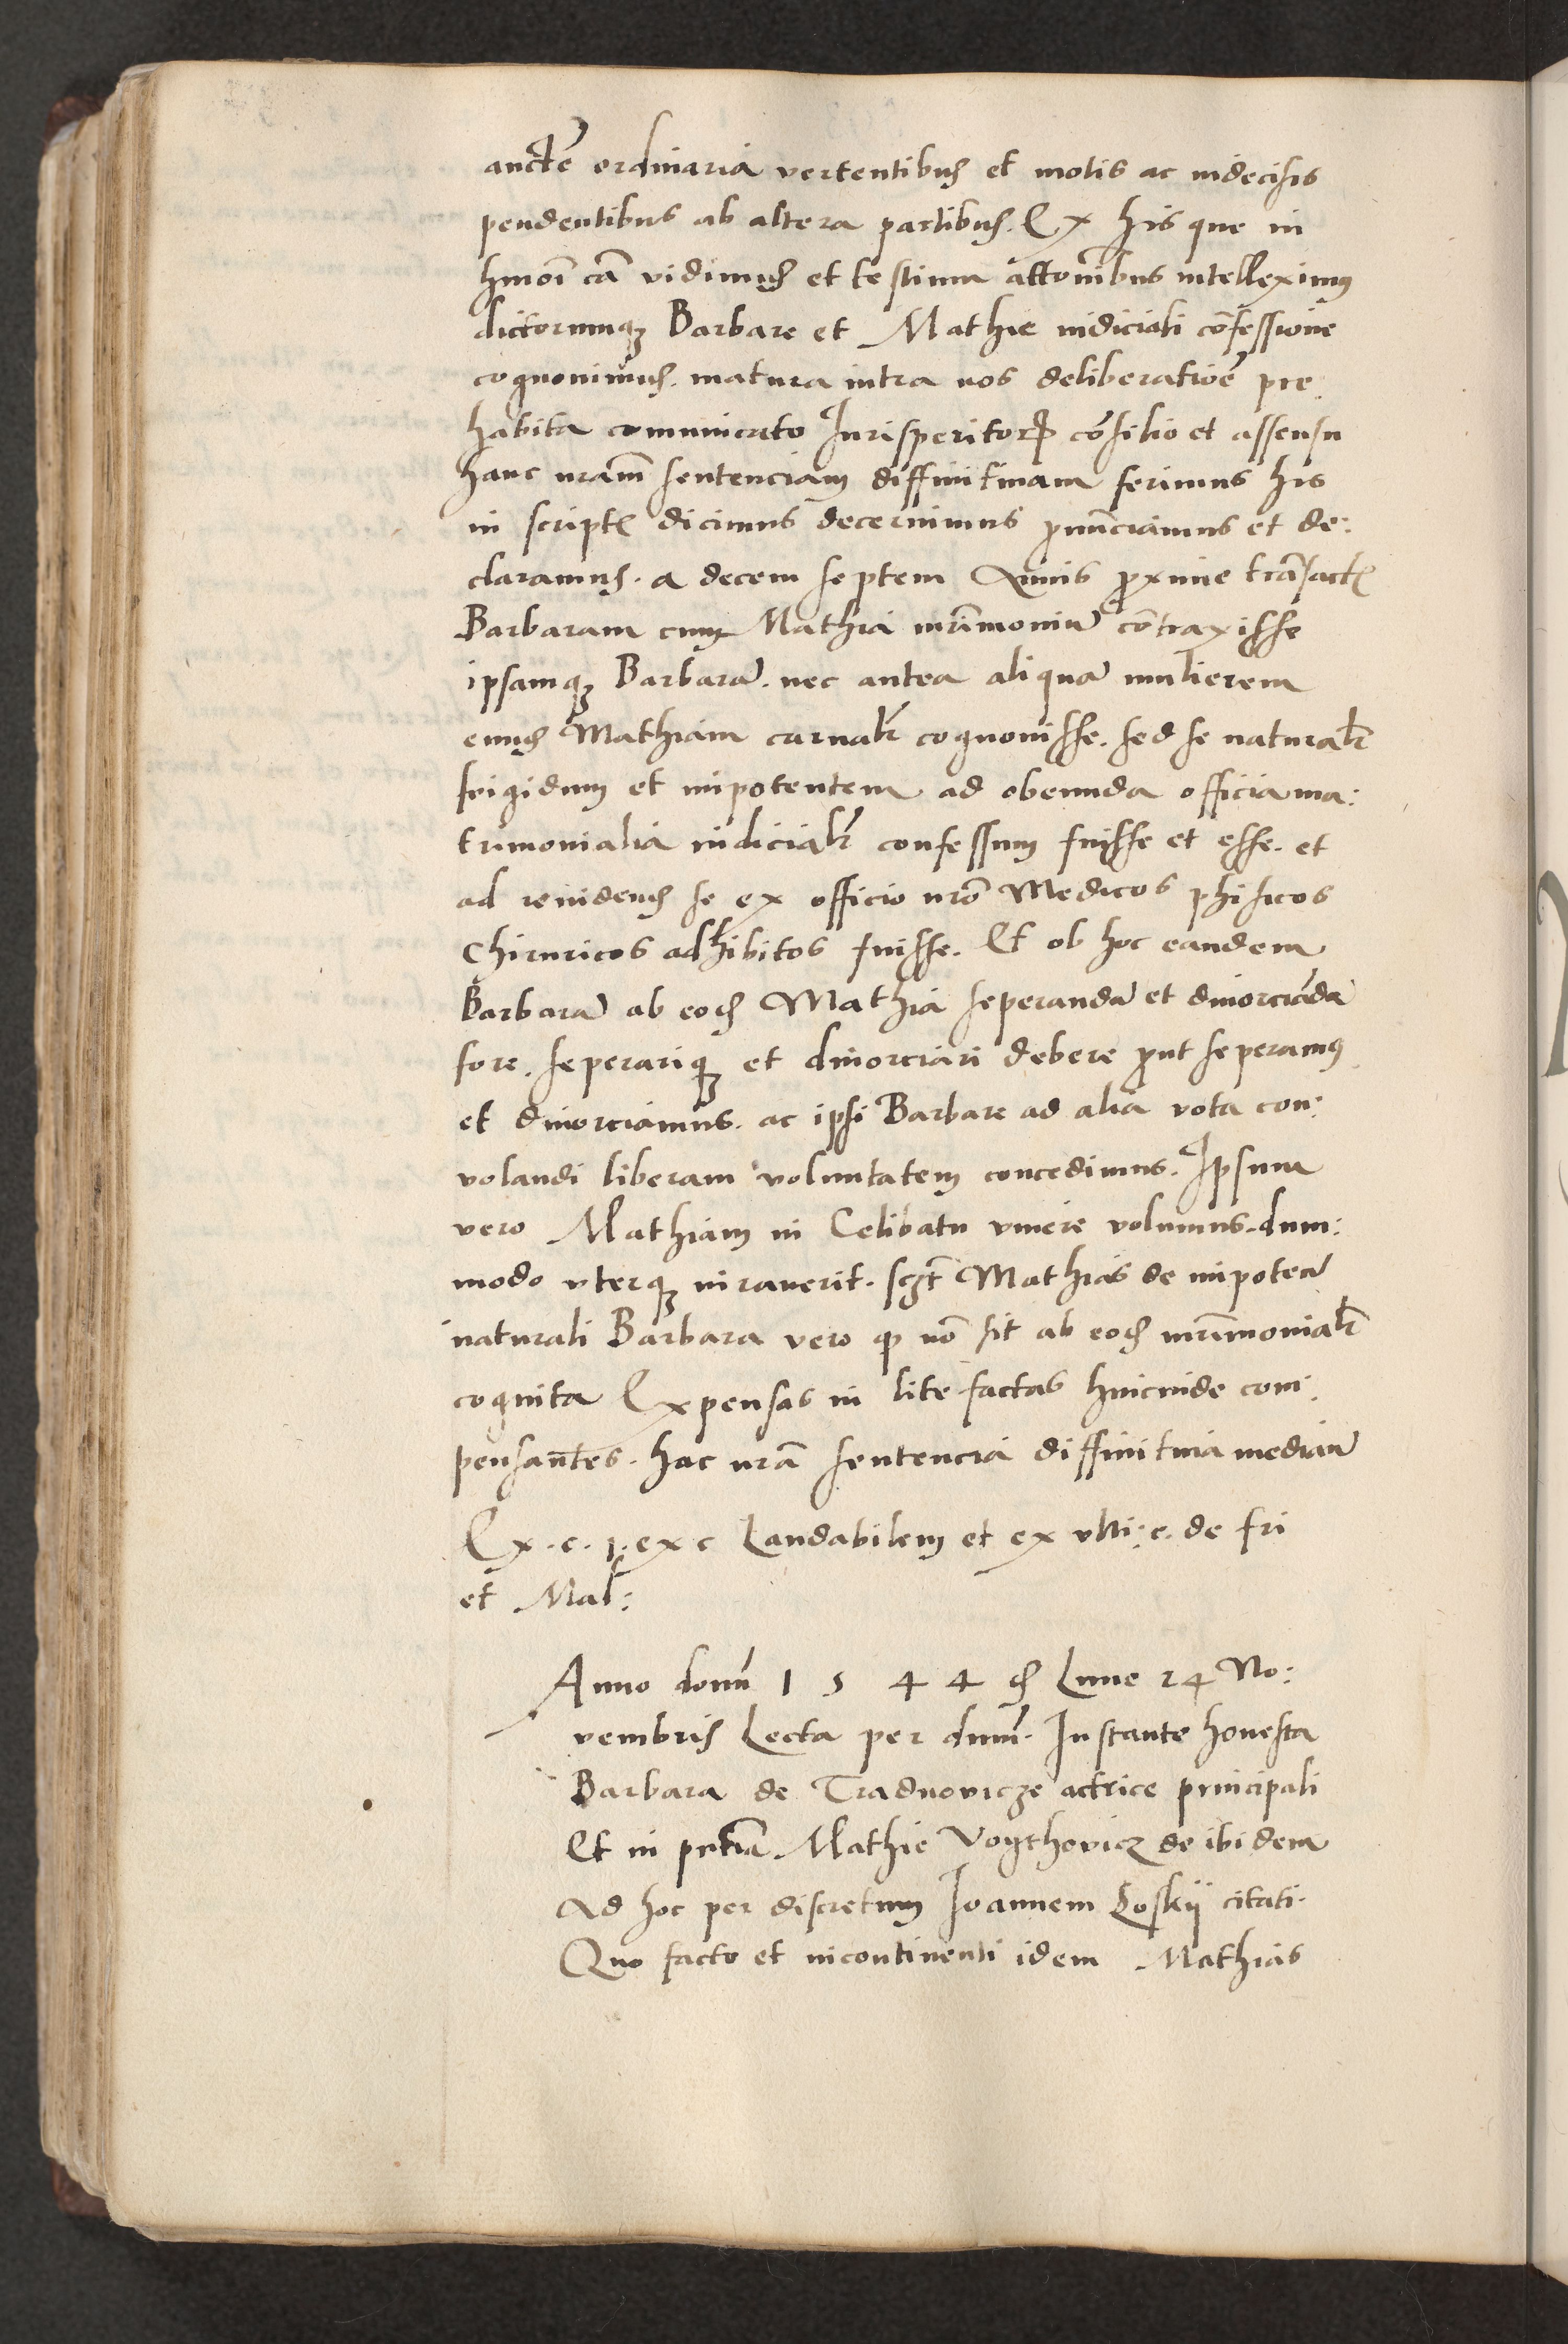 aucte ordinaria vertentibus et motis ac indecisis
pendentibus ab altera partibus. Ex his que in
hmoi ca vidimus et testium attonibus intelleximus
dictorumqz Barbare et Mathie iudiciali cofessione
cognouimus. matura intra nos deliberatioe pre
habita comunicato Jurisperitor cosilio et assensu
hanc nram sentenciam diffinitiuam ferimus his
in script dicimus decernimus pnunciamus et de:
claramus. a decem septem Annis pxime trasact
Barbaram cum Mathia mrimoniu cotraxisse
ipsamqz Barbara. nec antea aliqua mulierem
eund Mathiam carnalr cognouisse. sed se naturalr
frigidum et impotentem ad obeunda officia ma:
trimonialia iudicialr confessum fuisse et esse. et
ad reuidend se ex officio nro Medicos phisicos
Chiruricos adhibitos fuisse. Et ob hoc eandem
Barbara ab eod Mathia seperanda et diuorcianda
fore. seperariqz et diuorciari debere put seperamus
et diuorciamus. ac ipsi Barbare ad alia vota con:
volandi liberam voluntatem concedimus. Ipsum
vero Mathiam in Celibatu viuere volumus. dum:
modo vterqz iurauerit. sct Mathias de impotecia
naturali Barbara vero q no sit ab eod mrimonialr
cognita Expensas in lite factas hincinde com:
pensantes. hac nra sentencia diffinitiua median
Ex. c. 1. ex c Laudabilem et ex vlti: c. de fri
et Mal:
Anno domi 1 5 4 4 d Lune 24 No:
vembris Lecta per dnum. Instante honesta
Barbara de Tradnouicze actrice principali
Et in pntia Mathie Vogthovicz de ibidem
Ad hoc per discretum Joannem Loskij citati.
Quo facto et incontinenti idem Mathias